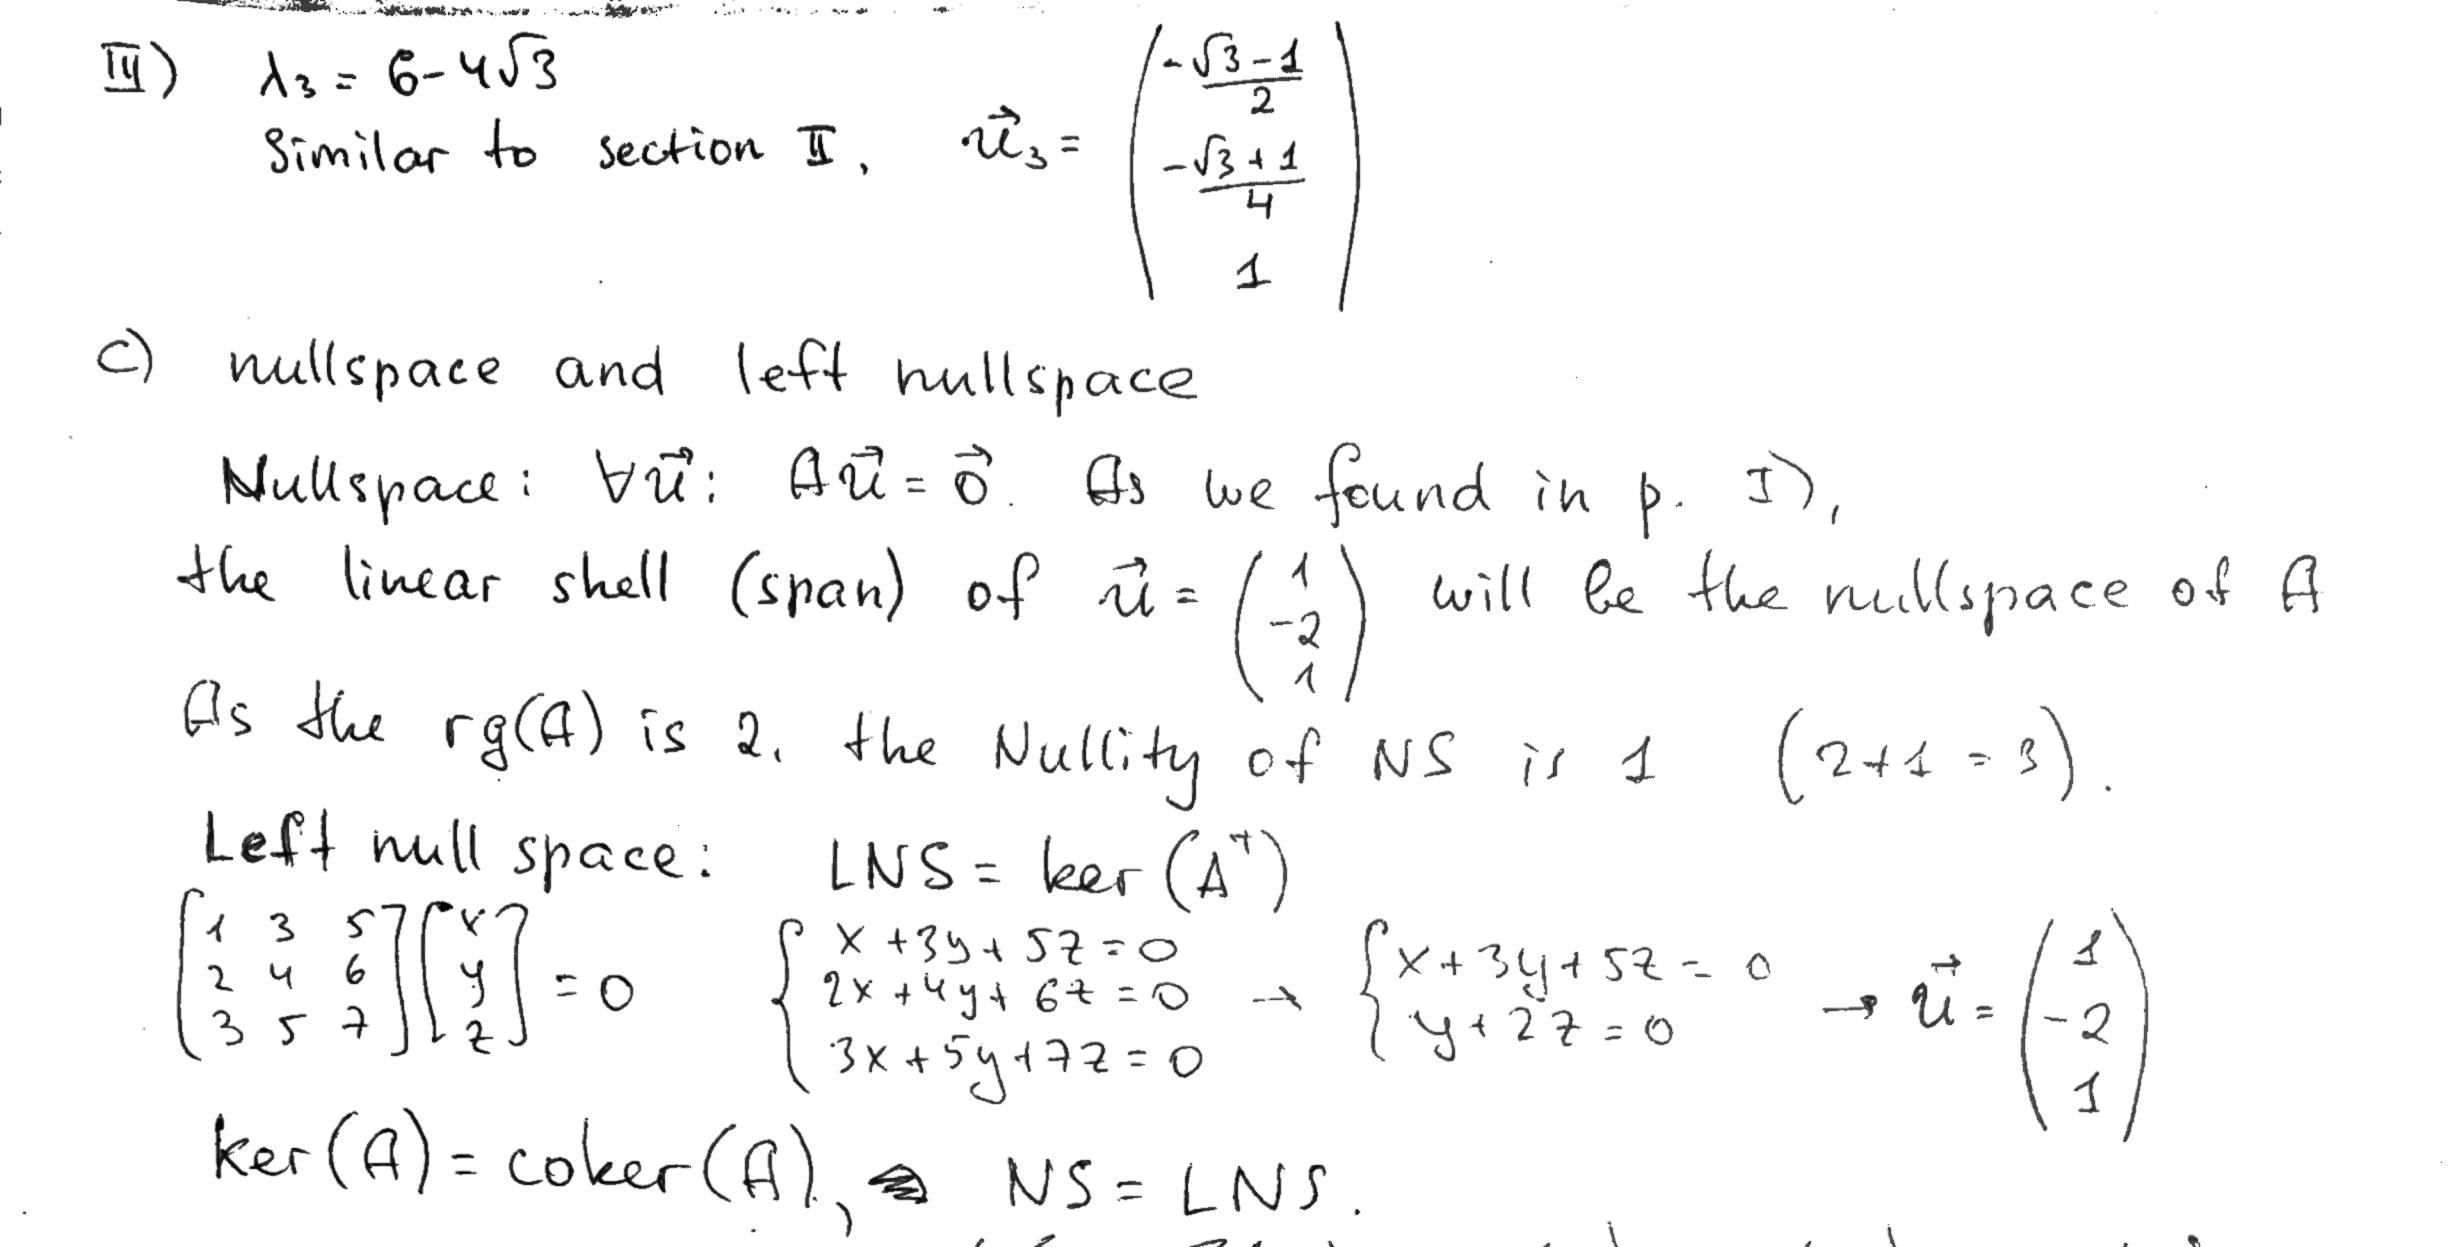 III) λ₃ = 6-4√3
Similar to section II, u⃗₃ = ( (-√3-1)/2, (-√3+1)/4, 1 )
c) nullspace and left nullspace
Nullspace: ∀u⃗: Au⃗ = 0⃗. As we found in p. I),
the linear shell (span) of u⃗ = ( 1, -2, 1 ) will be the nullspace of A
As the rg(A) is 2, the Nullity of NS is 1 (2+1=3).
Left null space: LNS = ker(Aᵀ)
[ 1 3 5 ; 2 4 6 ; 3 5 7 ] [ x ; y ; z ] = 0 { x+3y+5z=0 ; 2x+4y+6z=0 ; 3x+5y+7z=0 → { x+3y+5z=0 ; y+2z=0 → u⃗ = ( 1, -2, 1 )
ker(A) = coker(A), NS = LNS.